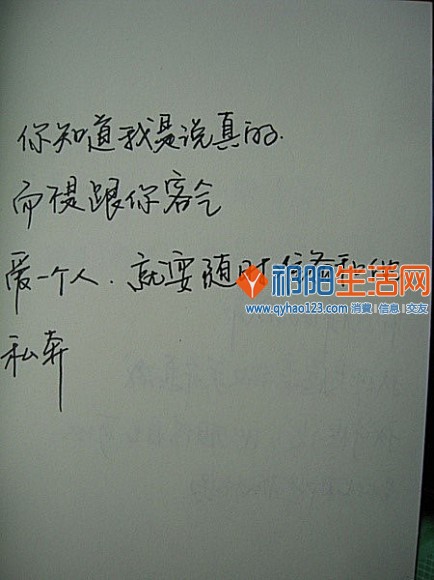 你知道我是说真的.
而不是跟你客气
爱一个人.就要随时准备和
私奔
祁阳生活网
www.qyhao123.com 消费|信息|交友